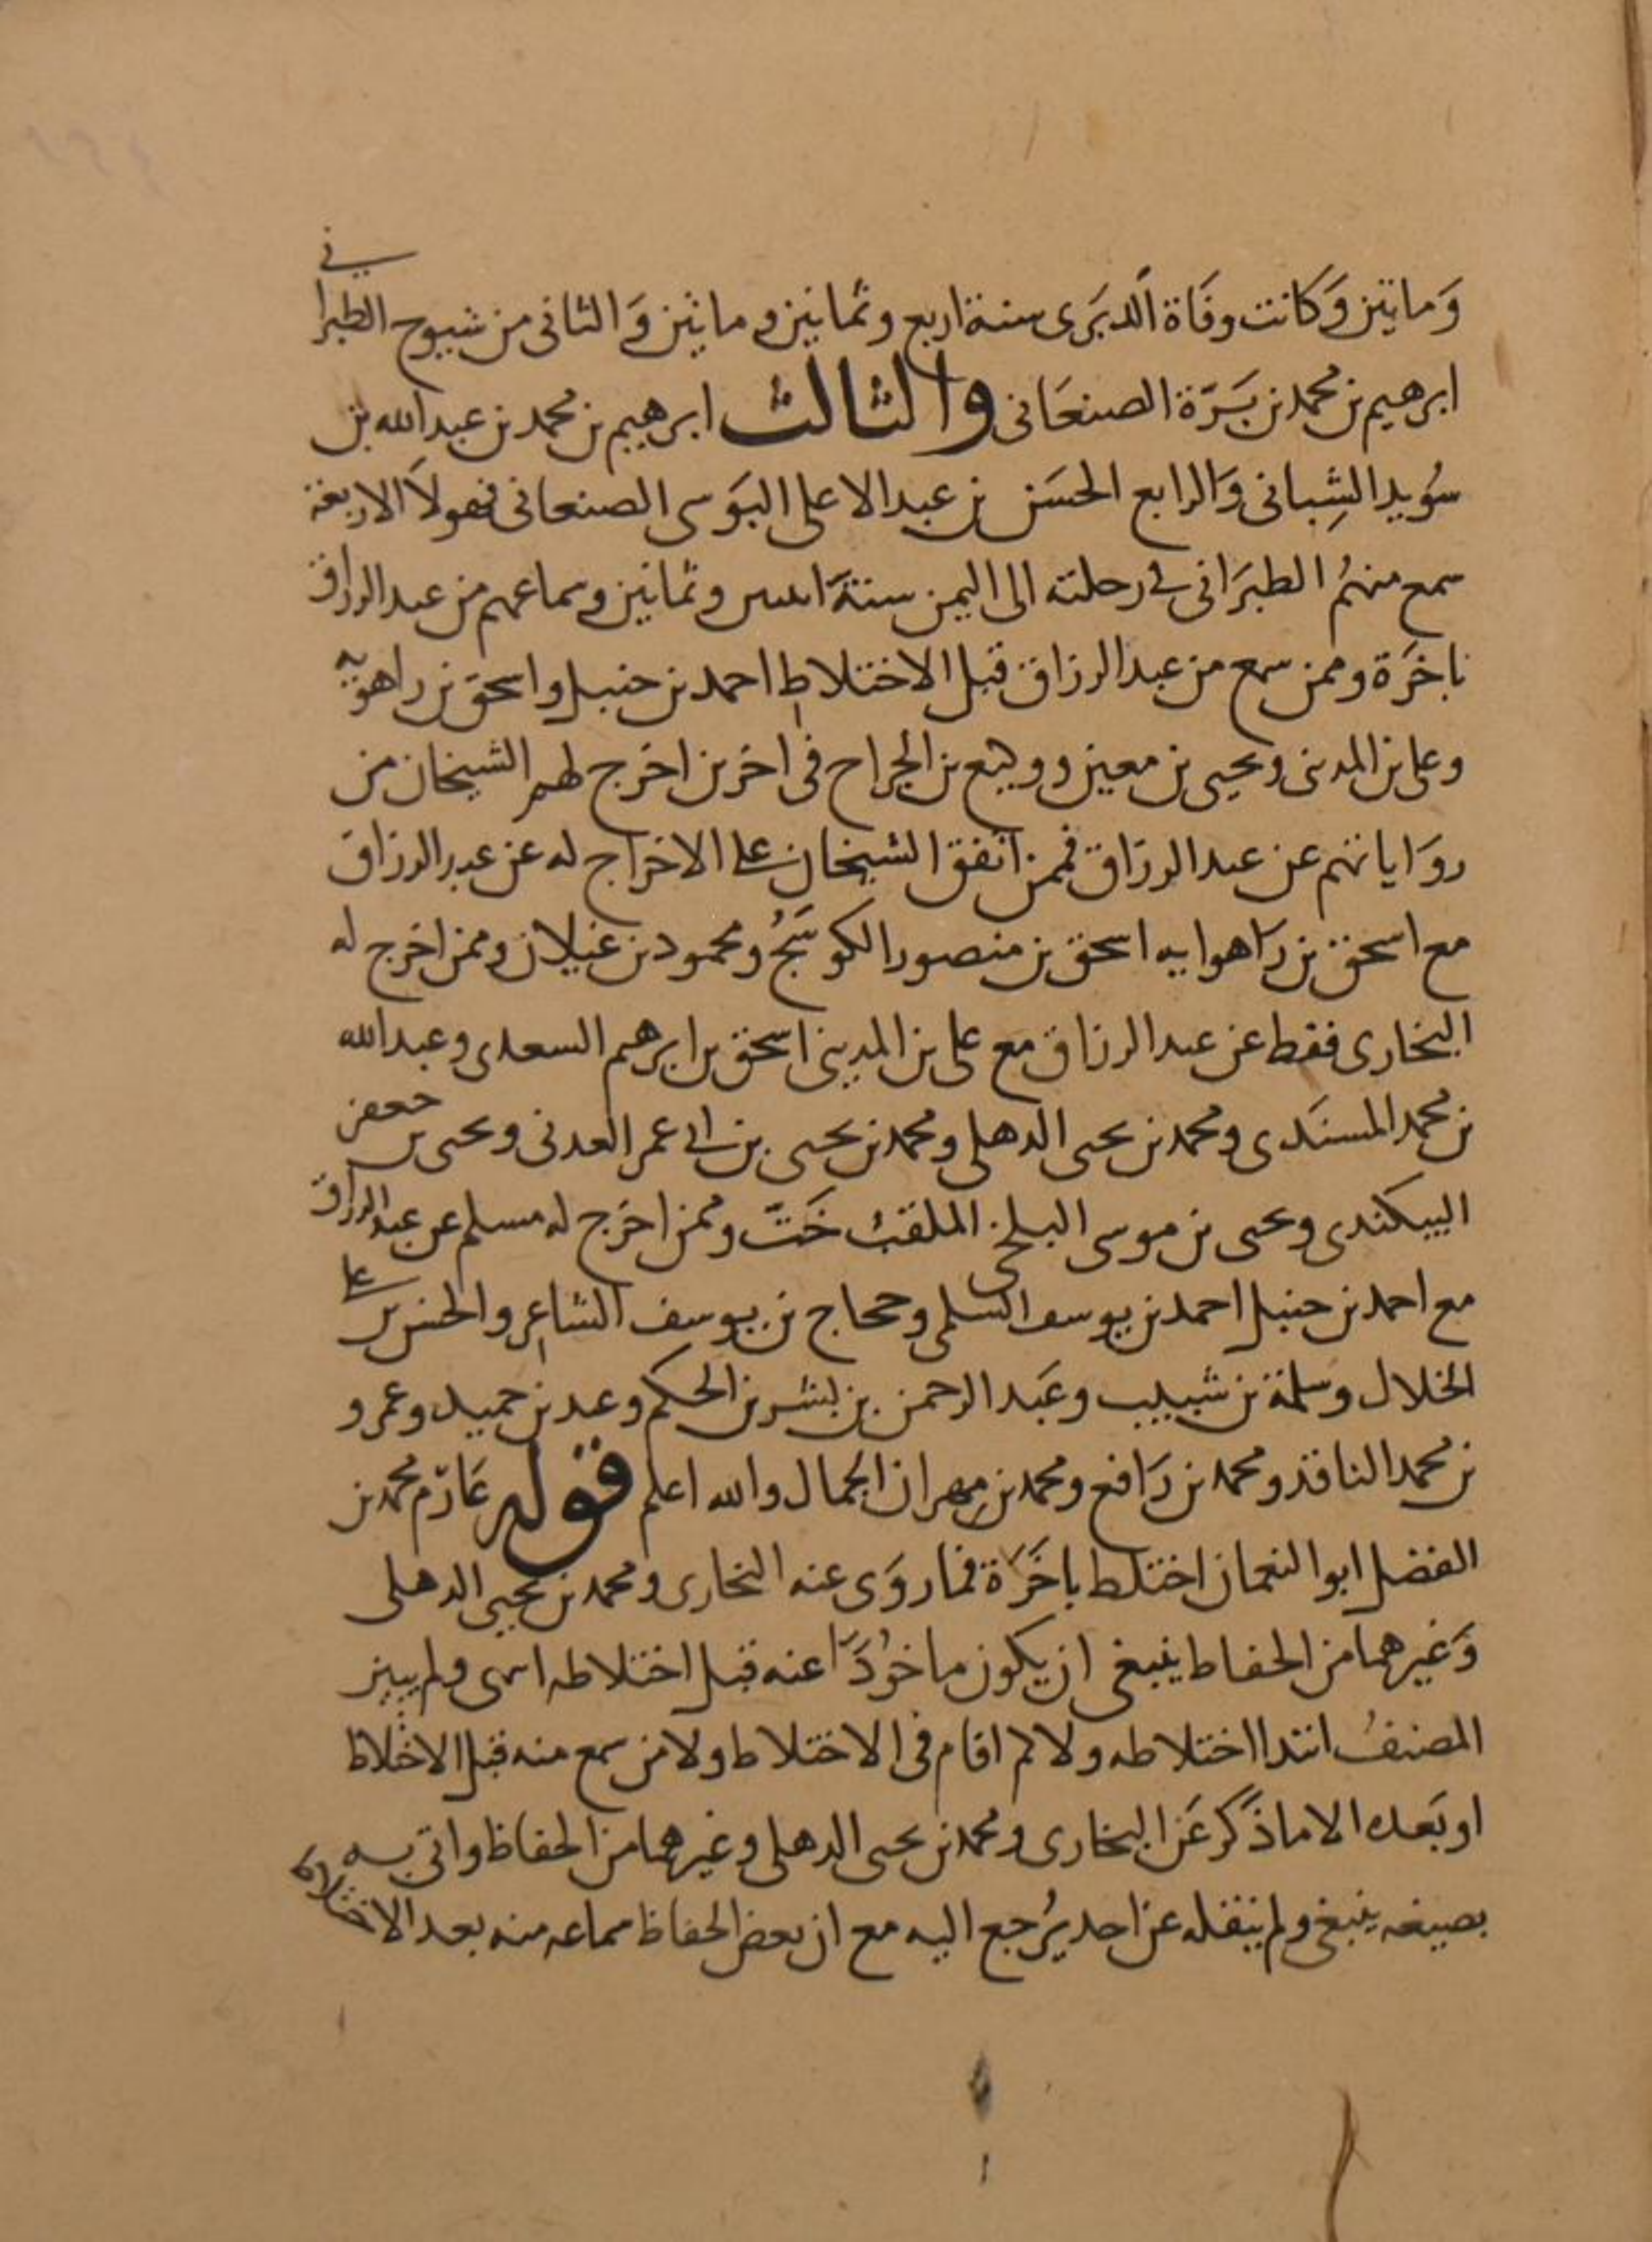 وَمايتين وَكانت وفَاة الدبَرى سنة اربع وثمانين وماىتين وَالثانى من شيوح الطبرانى
ابرهيم بن محمد بن بَرّة الصنعَانى والثالث ابرهيم بن محمد بن عبد الله بن
سُويد الشِبانى وَالرابع الحسَن بن عبد الاعلى البَوَسى الصنعانى فهولاَ الاربعة
سمع منهُم الطبرَانى في رحلته الى اليمن سنةَ اىىىں وثمانين وسماعهم من عبد الرزاق
باخَرَة وممن سمع من عبد الرزاق قبل الاختلاط احمد بن حنبل واسحق بن راهويه
وعلى بن المدينى ويحيى بن معين ووكيع بن الجراح فى اخرين اخرج لهم الشيخان من
روَاياتهم عن عبد الرزاق فممن اتفق الشيخان على الاخراج له عن عبد الرزاق
مع اسحق بن رَاهوايه اسحق بن منصور الكوسَجُ ومحمود بن غيلان وممن اخرج له
البخارى فقط عن عبد الرزاق مع على بن المدينى اسحق بن ابرهيم السعدى وعبد الله
بن محمد المسنَدى ومحمد بن يحيى الدهلى ومحمد بن يحيى بن ابى عمر العدنى ويحيى بن جعفر
البيكندى ويحيى بن موسى البلخى الملقب خَتّ وممن اخرَج له مسلم عن عبد الرزاق
مع احمد بن حنبل احمد بن يوسف السلمى وحجاج بن يوسف الشاعر والحسن بن على
الخلال وسلمة بن شبيب وعَبد الرحمن بن بشر بن الحكم وعبد بن حميد وعمرو
بن محمد الناقد ومحمد بن رَافع ومحمد بن مهران الجمال والله اعلم قوله عَارم محمد بن
الفضل ابو النعمان اختلط باخَرَة فما روَى عنه البخارى ومحمد بن يحيى الدهلى
وَغيرهما من الحفاط ينبغى ان يكون ماخوُدَا عنه قبل اختلاطه انتهى ولم يبين
المصنفُ ابتدا اختلاطه ولا لم اقام فى الاختلاط ولا من سمع منه قبل الاختلاط
او بَعده الا ما ذَكرَ عَن البخارى ومحمد بن يحيى الدهلى وغيرهما من الحفاظ واتى به
بصيغه ينبغى ولم ينقله عن احد يُرجع اليه مع ان بعض الحفاظ سماعه منه بعد الاختلاط